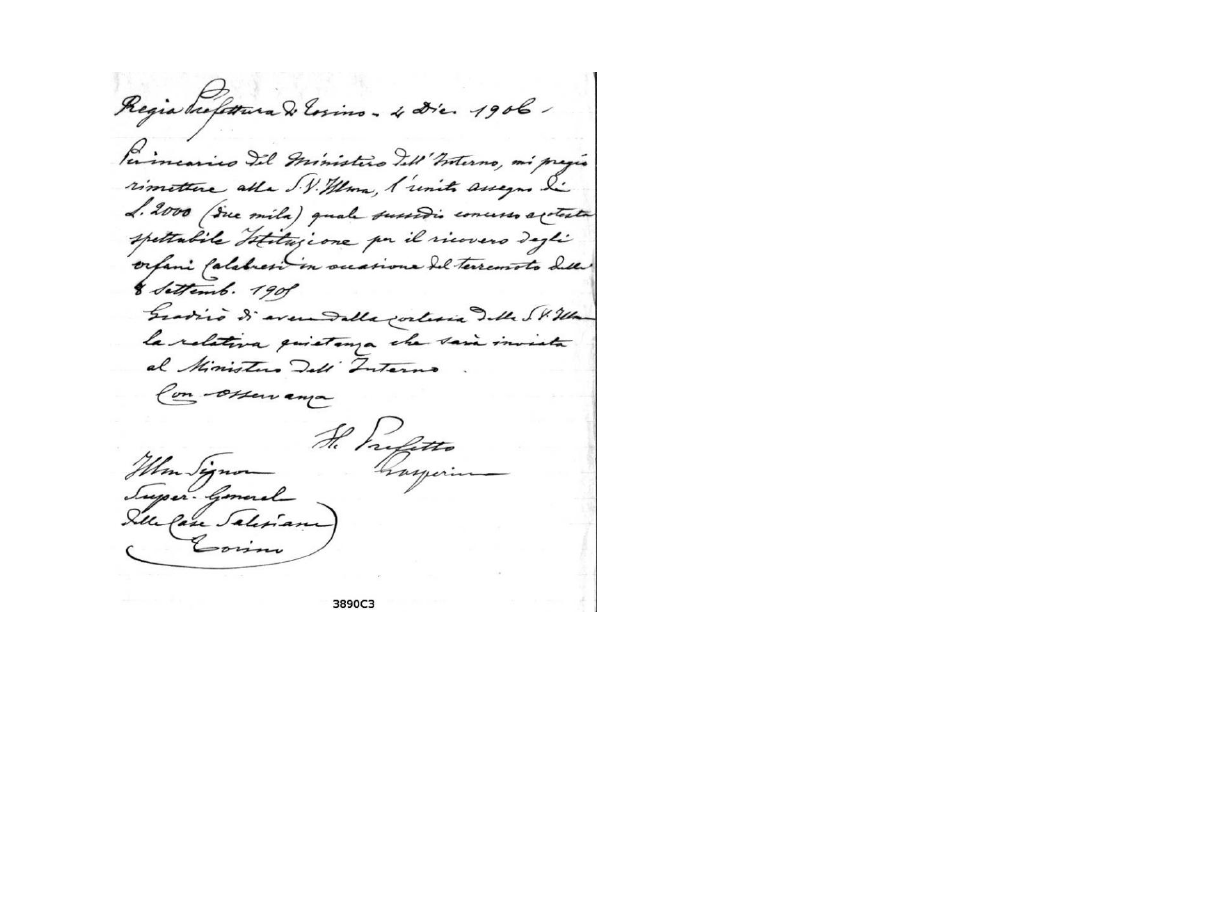 Regia Prefettura di Torino - 4 Dic. 1906 -
Per incarico del Ministero dell'Interno, mi pregio
rimettere alla S.V. Illma, l'unito assegno di
L. 2000 (due mila) quale sussidio concesso a cotesta
spettabile Istituzione per il ricovero degli
orfani Calabresi in occasione del terremoto dell'
8 Settemb. 1905
Gradirò di avere dalla cortesia della S.V. Illma
la relativa quietanza che sarà inviata
al Ministero dell'Interno.
Con osservanza
Il Prefetto
Gasperini
Illm Signor
Super. General
delle Case Salesiane
Torino
3890C3